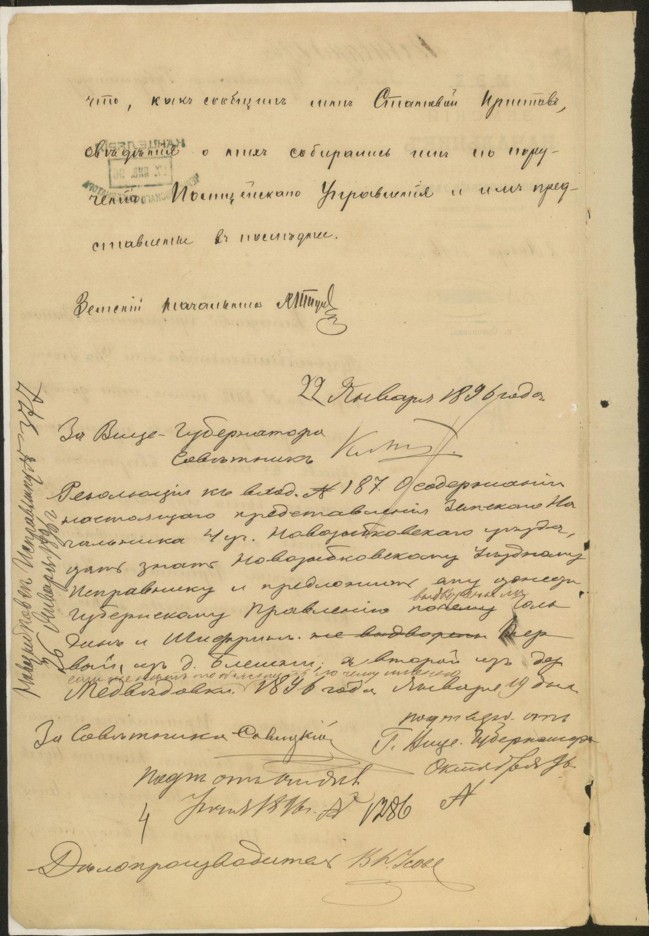 что, какъ сообщилъ мнѣ Становой Приставъ,
свѣдѣнія о нихъ собирались имъ по пору-
ченію Полицейскаго Управленія и имъ пред-
ставлены въ послѣднее.
Земскій Начальникъ
22 Января 1896 года
За Вице-Губернатора
Совѣтникъ
Резолюція къ вход. № 187. О содержаніи
настоящаго представленія Земскаго На-
чальника 4 уч. Новозыбковскаго уѣзда,
дать знать Новозыбковскому Уѣздному
Исправнику и предложить ему донести
Губернскому Правленію почему
и Шифринъ не выдворены пер
вый изъ д. а второй изъ дер
Медвѣдовки. 1896 года Января 19 дня
За Совѣтника Савицкій
подтверж. отъ
Г. Вице-Губернатора
Октября
подт отъ
4 1896 г. № 1286
№
Дѣлопроизводитель
Исправнику № 377
26 Января 1896 г.